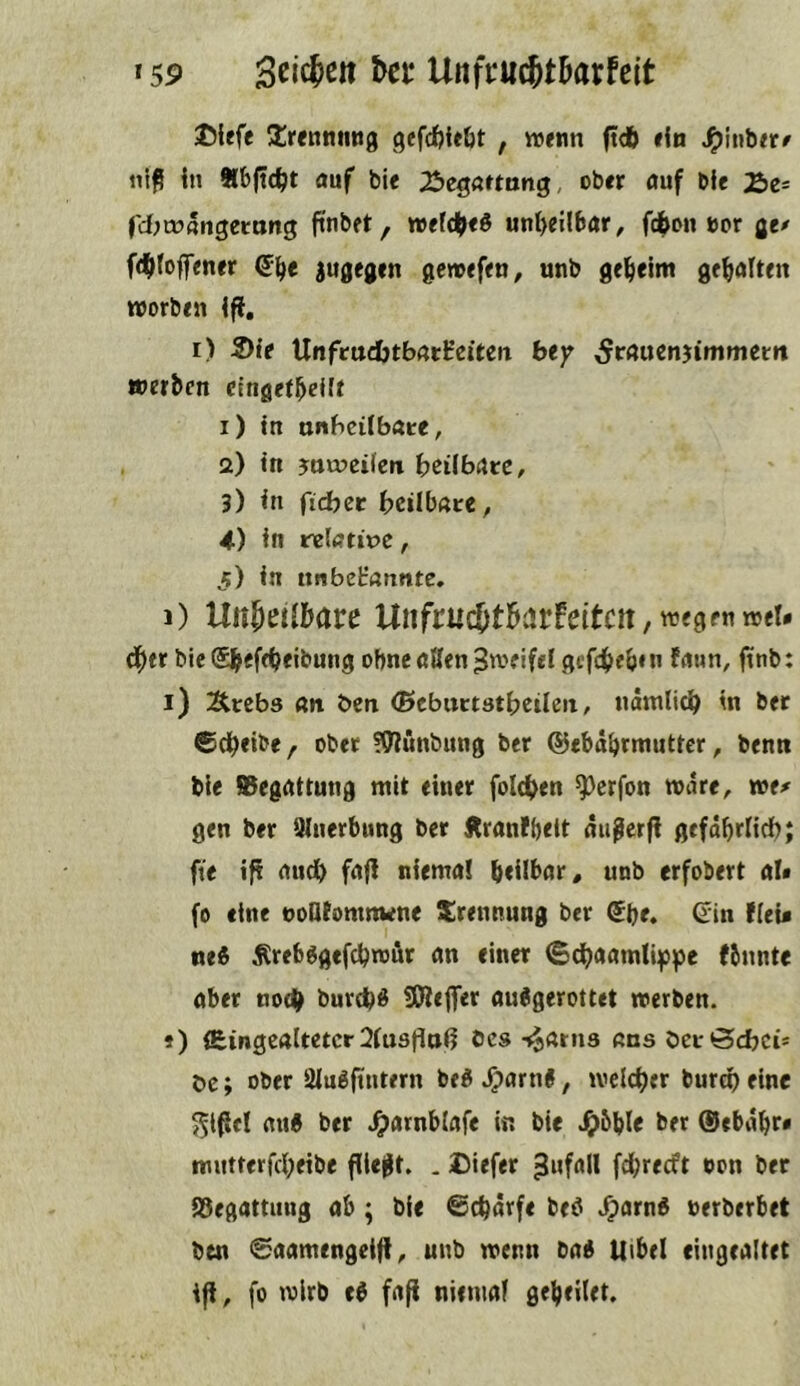 159 Zeichen der Unfruchtbarkeit
Diese Trennung geschieht, wenn sich ein Hinder-
niß in Absicht auf die Begattung, oder auf die Be-
schwängerung findet, welches unheilbar, schon vor ge-
schlossener Ehe zugegen gewesen, und geheim gehalten
worden ist.
1) Die Unfruchtbarkeiten bey Frauenzimmern
werden eingetheilt
1) in unheilbare,
2) in zuweilen heilbare,
3) in sicher heilbare,
4) in relative,
5) in unbekannte.
1) Unheilbare Unfruchtbarkeiten, wegen wel-
cher die Ehescheidung ohne allen Zweifel geschehen kann, sind:
1) Krebs an den Geburtstheilen, nämlich in der
Scheide, oder Mündung der Gebährmutter, denn
die Begattung mit einer solchen Person wäre, we-
gen der Anerbung der Krankheit äußerst gefährlich;
sie ist auch fast niemal heilbar, und erfodert al-
so eine vollkommene Trennung der Ehe. Ein klei-
nes Krebsgeschwür an einer Schaamlippe könnte
aber noch durchs Messer ausgerottet werden.
2) Eingealteter Ausfluß des Harns aus der Schei-
de; oder Aussintern des Harns, welcher durch eine
Fistel aus der Harnblase in die Höhle der Gebähr-
mutterscheide fließt. . Dieser Zufall schreckt von der
Begattung ab; die Schärfe des Harns verderbet
den Saamengeist, und wenn das Uibel eingealtet
ist, so wird es fast niemal geheilet.